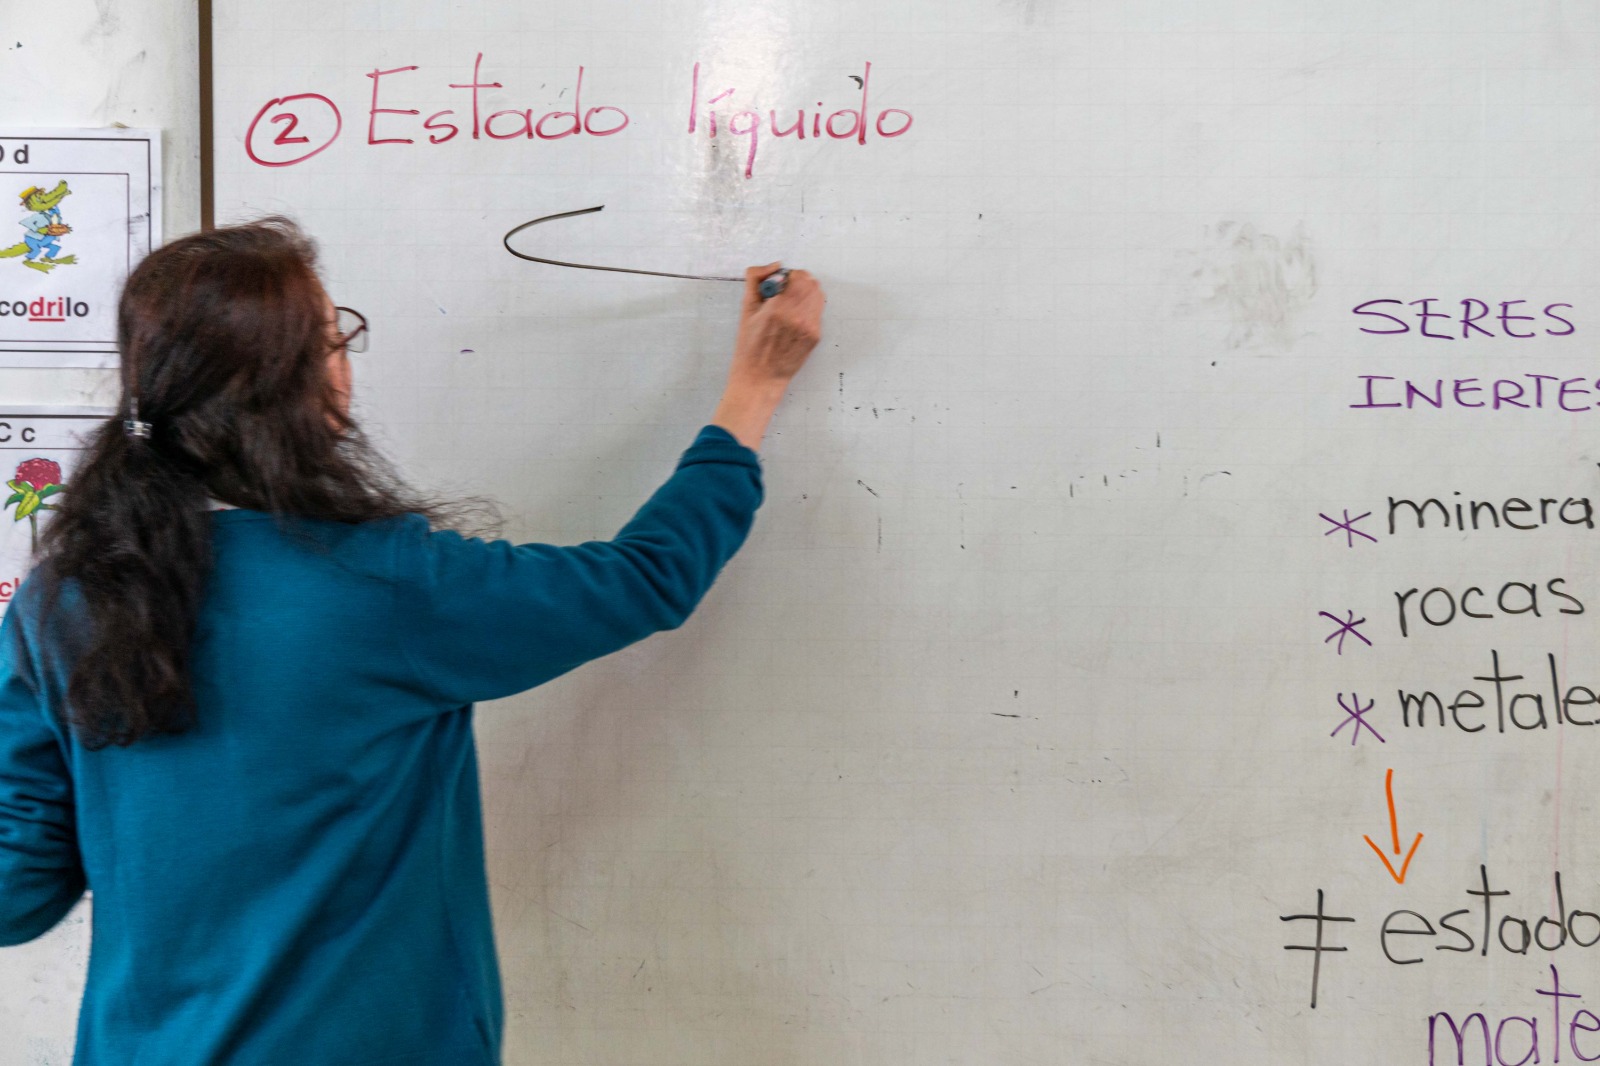 ② Estado líquido
D d
codrilo
C c
SERES
INERTES
* minera
* rocas
* metales
↓
≠ estado
mate